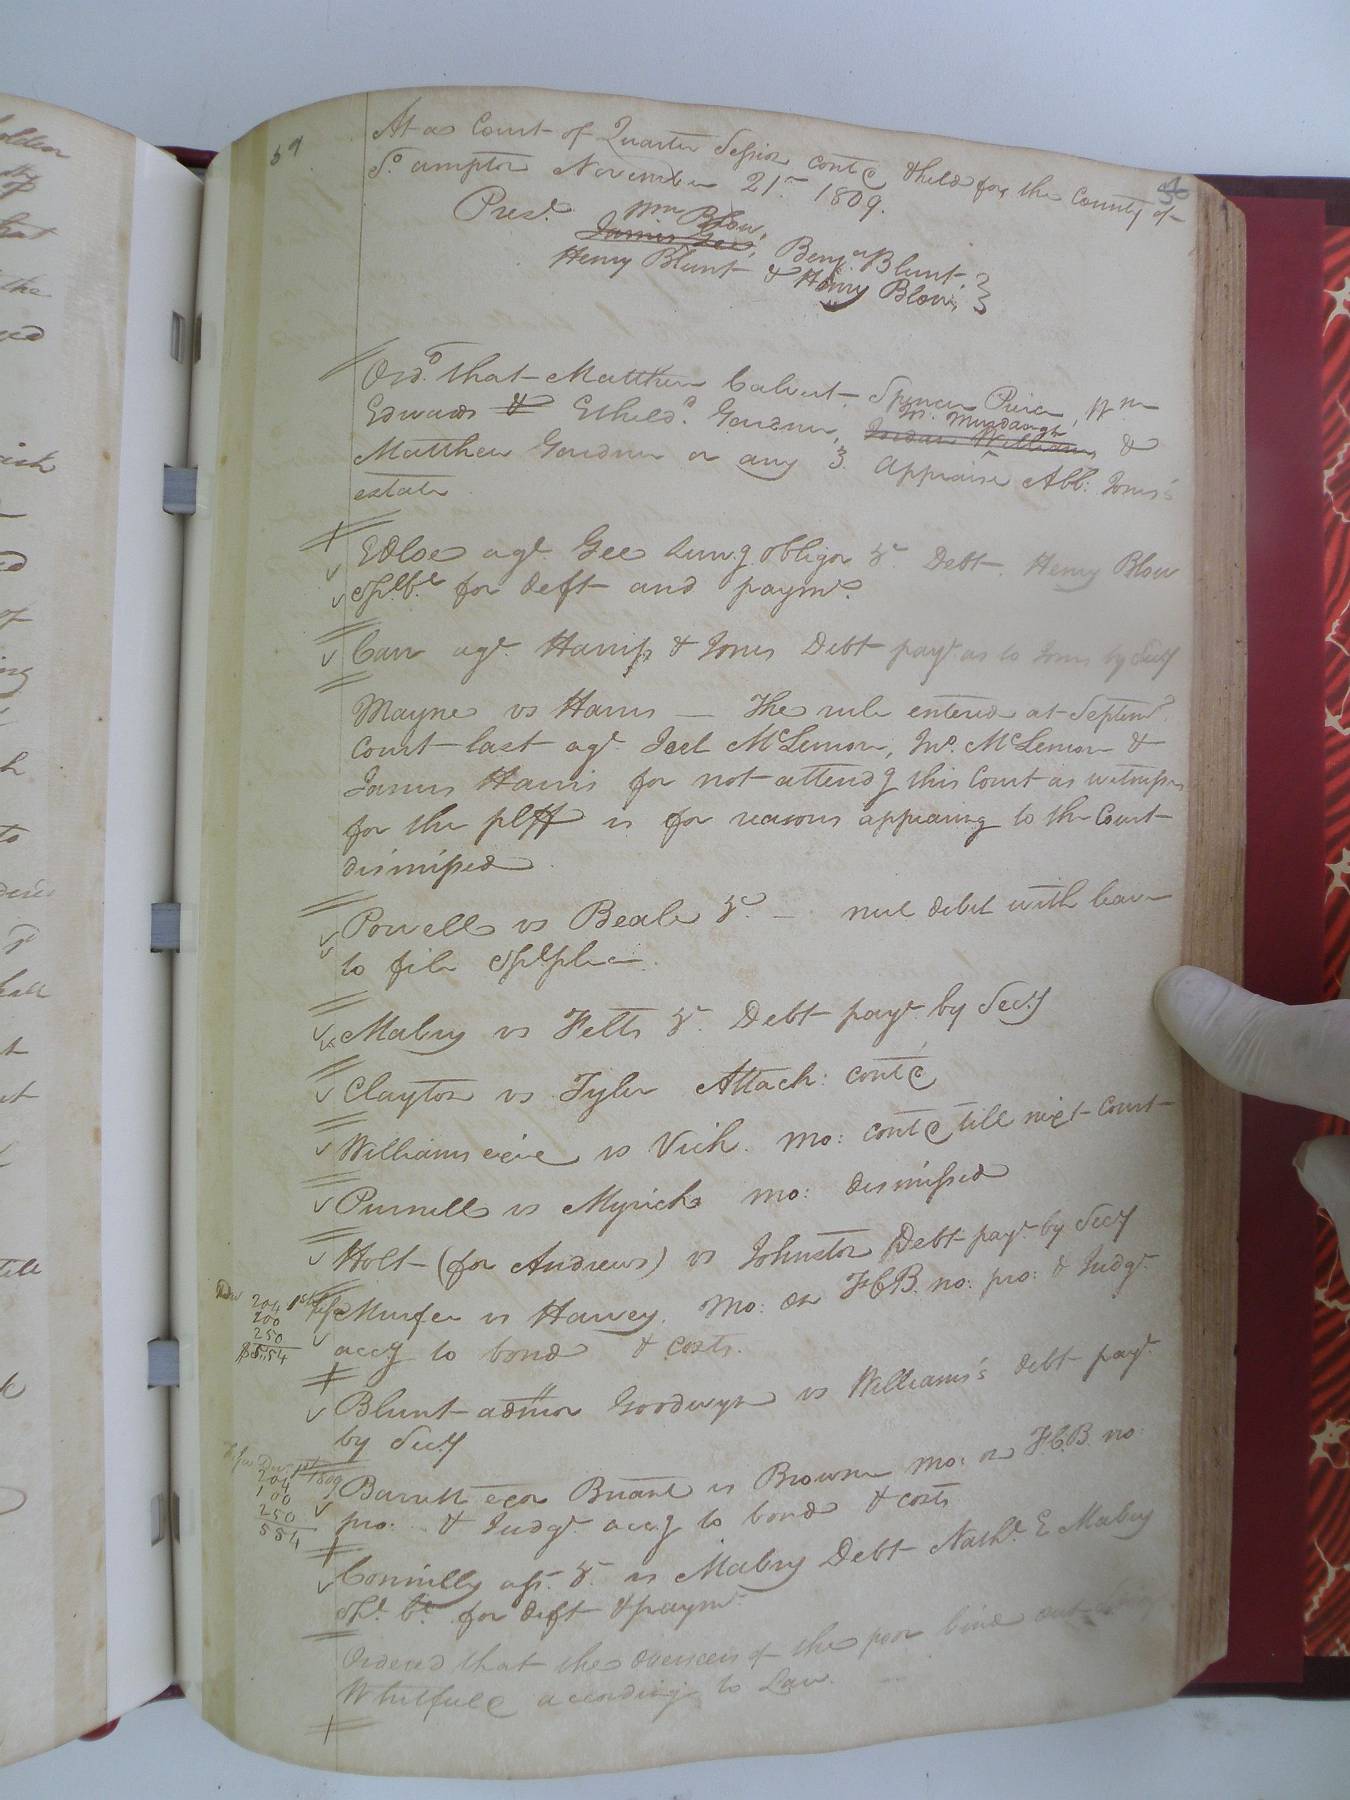 59
At a Court of Quarter Session contd & held for the County of
So. ampton November 21st 1809.
Prest. Wm Blow,
James Gee, Benja. Blunt,
Henry Blunt & Henry Blow,
Ord. that Matthew Calvert, Spencer Pierce, Wm
Edwards & Etheld. Gardner, Jordan Williams, Jno. Murdaugh &
Matthew Gardner or any 3. Appraise Abb: Jones's
estate
Edloe agt. Gee survg obligor &c. Debt. Henry Blow
Spl. be for deft and paymt.
Carr agt. Harriss & Jones Debt payt as to Jones by Secy
Mayne vs Harris — The rule entered at Septemr.
Court last agt. Joel McLemore, Jno. McLemore &
James Harris for not attendg this Court as witnesses
for the plff is for reasons appearing to the Court
dismissed
Powell vs Beale &c. — nul debet with leave
to file Spl plea.
Mabry vs Felts &c. Debt payt by Secy
Clayton vs Tyler Attach: contd
Williams exix vs Vick. Mo: contd till next Court
Purnell vs Myrick mo: dismissed
Holt (for Andrews) vs Johnston Debt payt by Secy
204 1st
200
250
$554
Murfee vs Harvey. Mo: on F.C.B. no: pro: & Judgt.
accg to bond & costs.
Blunt admor Goodwyn vs Williams's debt payt.
by Secy
Decr 1st 1809
204
100
250
554
Barrett exor vs Browne mo: on F.C.B. no:
pro: & Judgt. accg to bond & costs
Connilly ass. &c. vs Mabry Debt Nathl. E Mabry
Spl. be. for deft & paymt
Ordered that the overseers of the poor bind out
Whitfull according to Law.